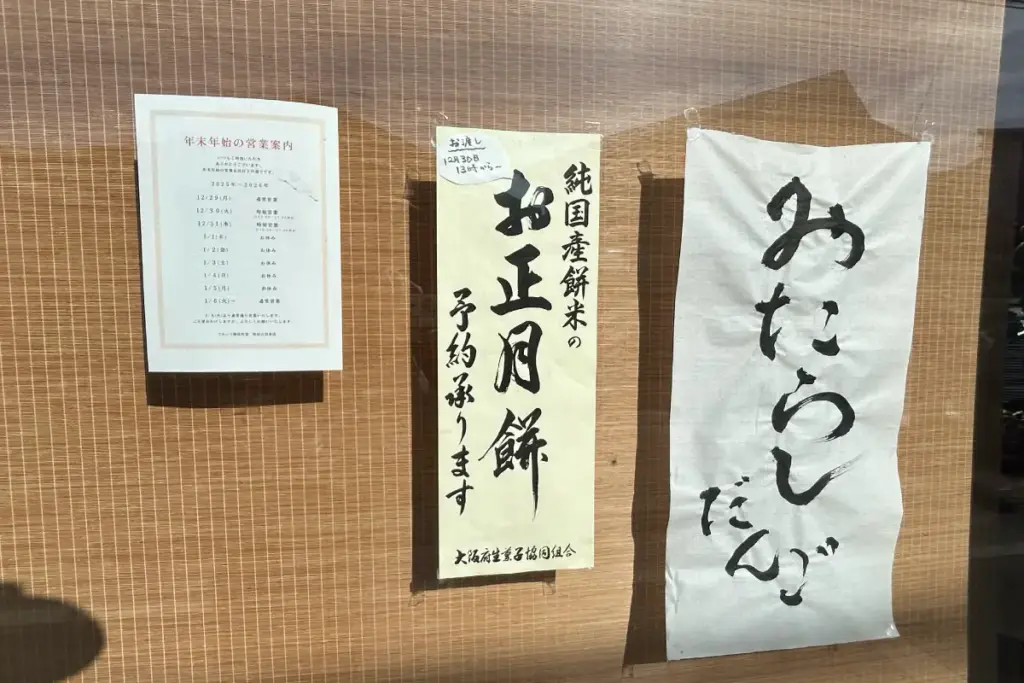 年末年始の営業案内
2025年～2026年
12/29(月) 通常営業
12/30(火) 時短営業
12/31(水) 時短営業
1/1(木) お休み
1/2(金) お休み
1/3(土) お休み
1/5(月) お休み
1/6(火)～ 通常営業
お渡し
12月30日
13時から〜
純国産餅米の
お正月餅
予約承ります
大阪府生菓子協同組合
みたらし
だんご